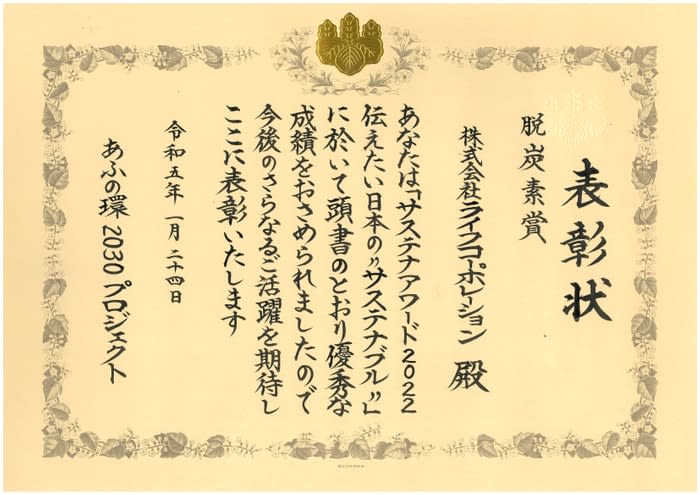 表彰状
脱炭素賞
株式会社ライフコーポレーション 殿
あなたは「サステナアワード2022
伝えたい日本の〃サステナブル〃」
に於いて頭書のとおり優秀な
成績をおさめられましたので
今後のさらなるご活躍を期待し
ここに表彰いたします
令和五年 一月 二十四日
あふの環 2030 プロジェクト